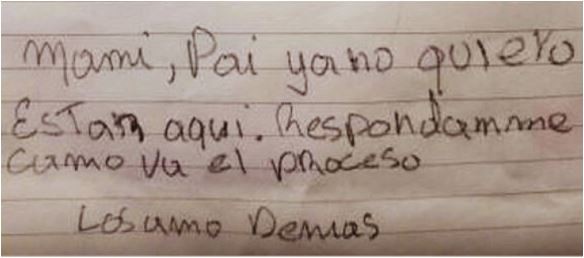 mami, Pai ya no quiero
Estar aqui. Respondamme
camo va el proceso
Los amo Demas